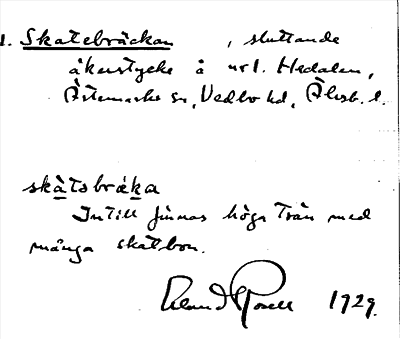 1. Skatebräckan, sluttande
åkerstycke å nr 1. Hedalen,
Ärtemarks sn, Vedbo hd, Älvsb. l.
skàtsbrák̲a
Intill finnas höga trän med
många skatbon.
1929.